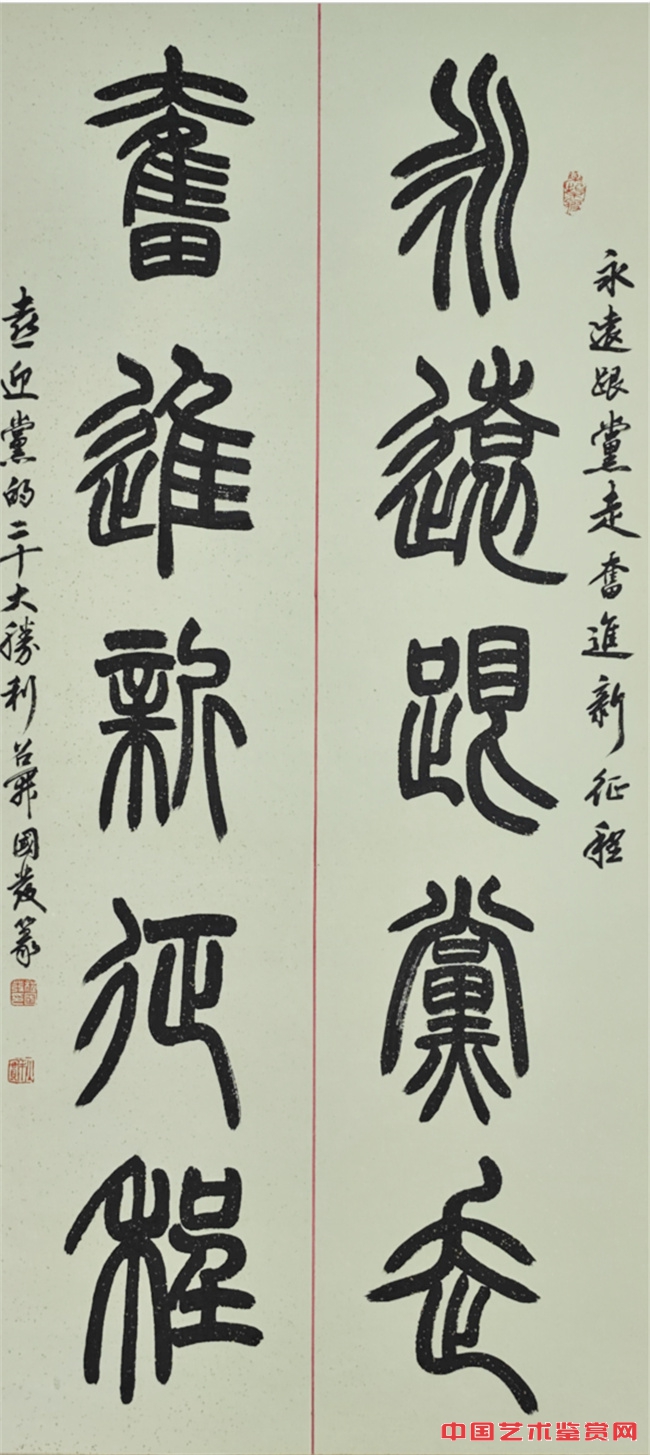 永遠跟黨走奮進新征程
永遠跟黨走
奮進新征程
喜迎黨的二十大勝利召開國發篆
中国艺术鉴赏网